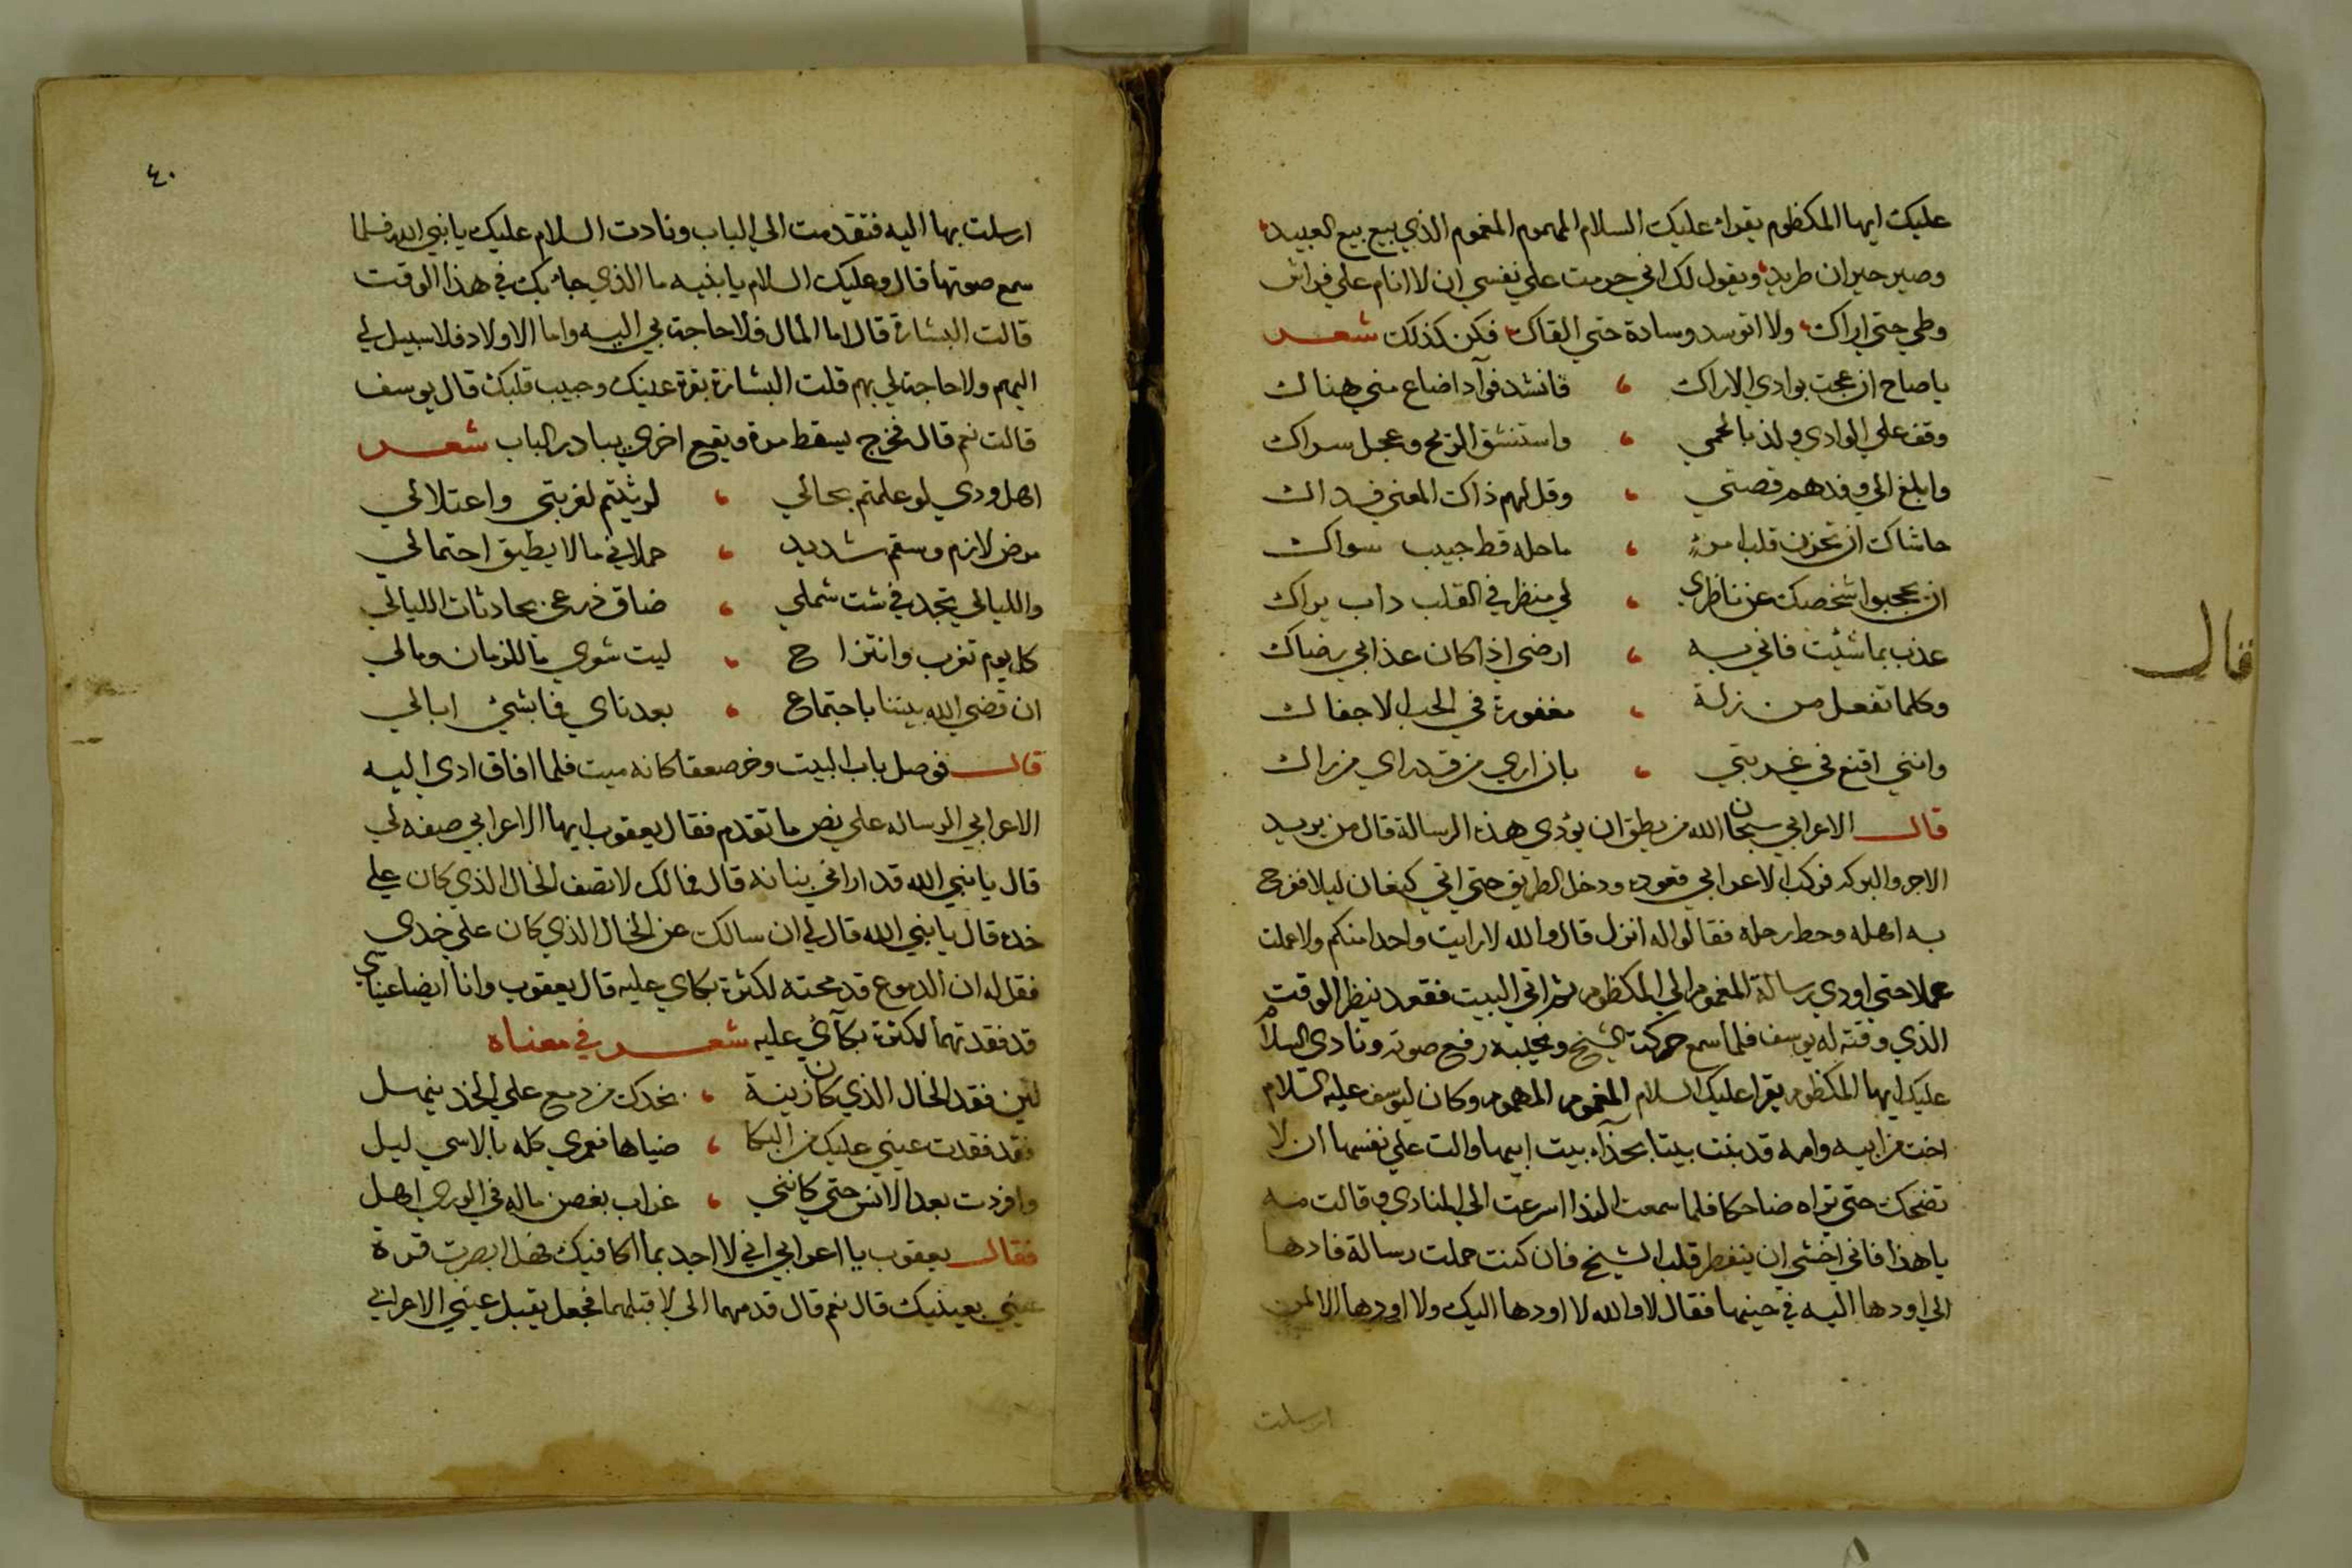 عليك ايها المكظوم يقراء عليك السلام المهموم المغموم الذي بيع بيع العبيد
وصير حيران طريد ويقول لك اني حرمت علي نفسي ان لا انام علي فراش
وطي حتي اراك ولا اتوسد وسادة حتي القاك فكن كذلك شعر
يا صاح ان عجت بوادي الاراك ، فانشد فوآدا ضاع مني هناك
وقف علي الوادي ولذ بالحمي ، واستنشق الريح وعجل سراك
وابلغ الي وفدهم قصتي ، وقل لهم ذاك المعني فداك
حاشاك ان تحزن قلب امرء ، ما حله قط حبيب سواك
ان يحجبوا شخصك عن ناظري ، لي منظر في القلب داب يراك
عذب بما شئت فاني به ، ارضي اذا كان عذابي رضاك
وكلما تفعل من زلة ، مغفورة في الحب الا جفاك
وانني اقنع في غربتي ، بان اري من قد راي من راك
قال الاعرابي سبحان الله من يطيق ان يؤدي هذه الرسالة قال من يريد
الاجر والبركه فركب الاعرابي قعوده ودخل الطريق حتي اتي كنعان ليلا ففرح
به اهله وحط رحله فقالوا له انزل قال والله لا رايت واحدا منكم ولا عملت
عملا حتي اودي رسالة المغموم الي المكظوم ثم اتي البيت فقعد ينظر الوقت
الذي وقته له يوسف فلما سمع حركة الشيخ ونحيبه رفع صوته ونادي السلام
عليك ايها المكظوم يقرا عليك السلام المغموم المهموم وكان ليوسف عليه السلام
اخت من ابيه وامه قد بنت بيتا بحذآء بيت ابيها والت علي نفسها ان لا
تضحك حتي تراه ضاحكا فلما سمعت الندا اسرعت الي المنادي وقالت مه
يا هذا فاني اخشي ان ينفطر قلب الشيخ فان كنت حملت رسالة فادها
الي اودها اليه في حينها فقال لا والله لا اودها اليك ولا اودها الا لمن
ارسلت
فقال
٤٠
ارسلت بها اليه فتقدمت الي الباب ونادت السلام عليك يا نبي الله فلما
سمع صوتها قال وعليك السلام يا بنيه ما الذي جاء بك في هذا الوقت
قالت البشارة قال اما المال فلا حاجة بي اليه واما الاولاد فلا سبيل لي
اليهم ولا حاجة لي بهم قلت البشارة بقرة عينك وحبيب قلبك قال يوسف
قالت نعم قال فخرج يسقط مرة ويقع اخري يبادر الباب شعر
اهل ودي لو علمتم بحالي ، لرثيتم لغربتي واعتلالي
مرض لازم وسقم شديد ، حملاني ما لا يطيق احتمالي
والليالي تجد في شت شملي ، ضاق ذرعي بحادثات الليالي
كل يوم تغرب وانتزا ح ، ليت شعري ما للزمان ومالي
ان قضي الله بيننا باجتماع ، بعد ناي فما بشئ ابالي
قال فوصل باب البيت وخر صعقا كانه ميت فلما افاق ادي اليه
الاعرابي الرساله علي نص ما تقدم فقال يعقوب ايها الاعرابي صفه لي
قال يا نبي الله قد اراني بنانه قال فما لك لا تصف الخال الذي كان علي
خده قال يا نبي الله قال لي ان سالك عن الخال الذي كان علي خدي
فقل له ان الدموع قد محته لكثرة بكاي عليه قال يعقوب وانا ايضا عيناي
قد فقدتهما لكثرة بكآئي عليه شعر في معناه
لئن فقد الخال الذي كان زينة ، بخدك من دمع علي الخد ينهمل
فقد فقدت عيني عليك من البكا ، ضياها فعمري كله بالاسي ليل
وافردت بعد الانس حتي كانني ، غراب بغصن ماله في الوري اهل
فقال يعقوب يا اعرابي اني لا اجد بما اكافيك فهل ابصرت قرة
عيني بعينيك قال نعم قال قدمهما الي لاقبلهما فجعل يقبل عيني الاعرابي